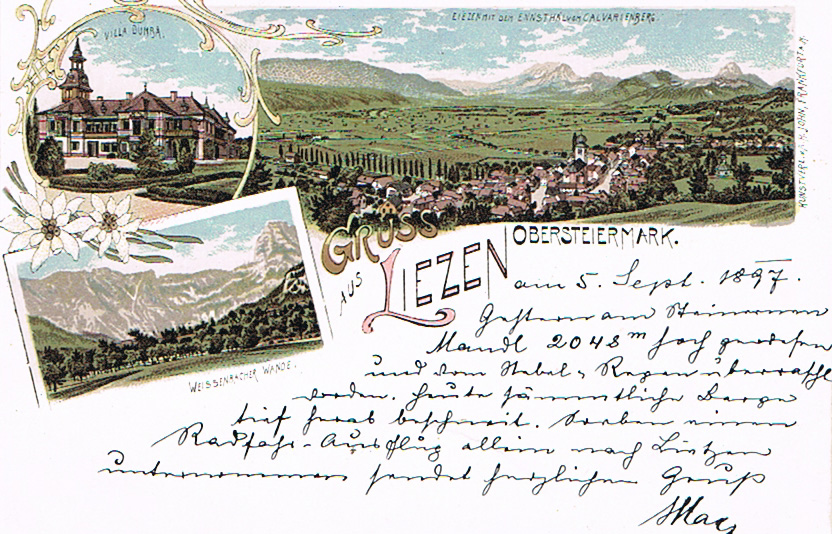 VILLA DUMBA.
LIEZEN MIT DEM ENNSTHAL VOM CALVARIENBERG
KUNSTVERL. v. H. JOHN, FRANKFURT A. M.
WEISSENBACHER WÄNDE.
GRUSS
AUS
LIEZEN
OBERSTEIERMARK.
am 5. Sept. 1897.
Gestern am Steinernen
Mandl 2048 m hoch gewesen
und von Nebel u. Regen überrascht
worden. Heute sämmtliche Berge
tief herab beschneit. Soeben einen
Radfahr-Ausflug allein nach Lietzen
unternommen sendet herzlichen Gruß
Max